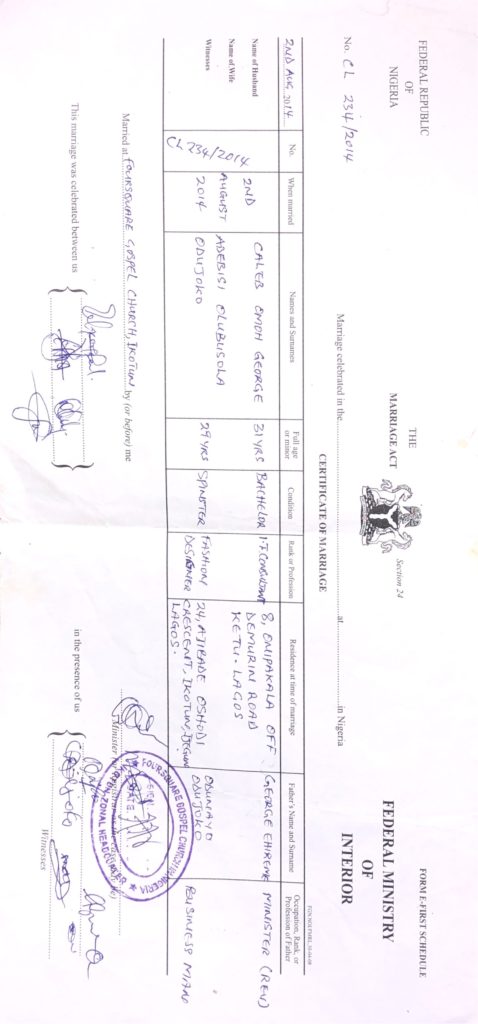 FEDERAL REPUBLIC
OF
NIGERIA
THE
MARRIAGE ACT
Section 24
FORM E-FIRST SCHEDULE
FEDERAL MINISTRY
OF
INTERIOR
No. CL 234/2014
Marriage celebrated in the at in Nigeria
CERTIFICATE OF MARRIAGE
2ND AUG, 2014
No.
When married
Names and Surnames
Full age or minor
Condition
Rank or Profession
Residence at time of marriage
Father's Name and Surname
Occupation, Rank, or Profession of Father
Name of Husband
Name of Wife
Witnesses
CL 234/2014
2ND
AUGUST
2014
CALEB OMOH GEORGE
31YRS
BACHELOR
IT CONSULTANT
8, ONIPAKALA OFF
DEMURIN ROAD
KETU - LAGOS
GEORGE EHIREME
MINISTER (REV)
ADEBISI OLUBUSOLA
ODUJOKO
29YRS
SPINSTER
FASHION
DESIGNER
24, AJIBADE OSHODI
CRESCENT, IKOTUN,
LAGOS.
ODUNAYO
ODUJOKO
BUSINESS MAN
Married at FOURSQUARE GOSPEL CHURCH, IKOTUN by (or before) me
FOURSQUARE GOSPEL CHURCH
ZONAL HEADQUARTERS
This marriage was celebrated between us
in the presence of us
Witnesses